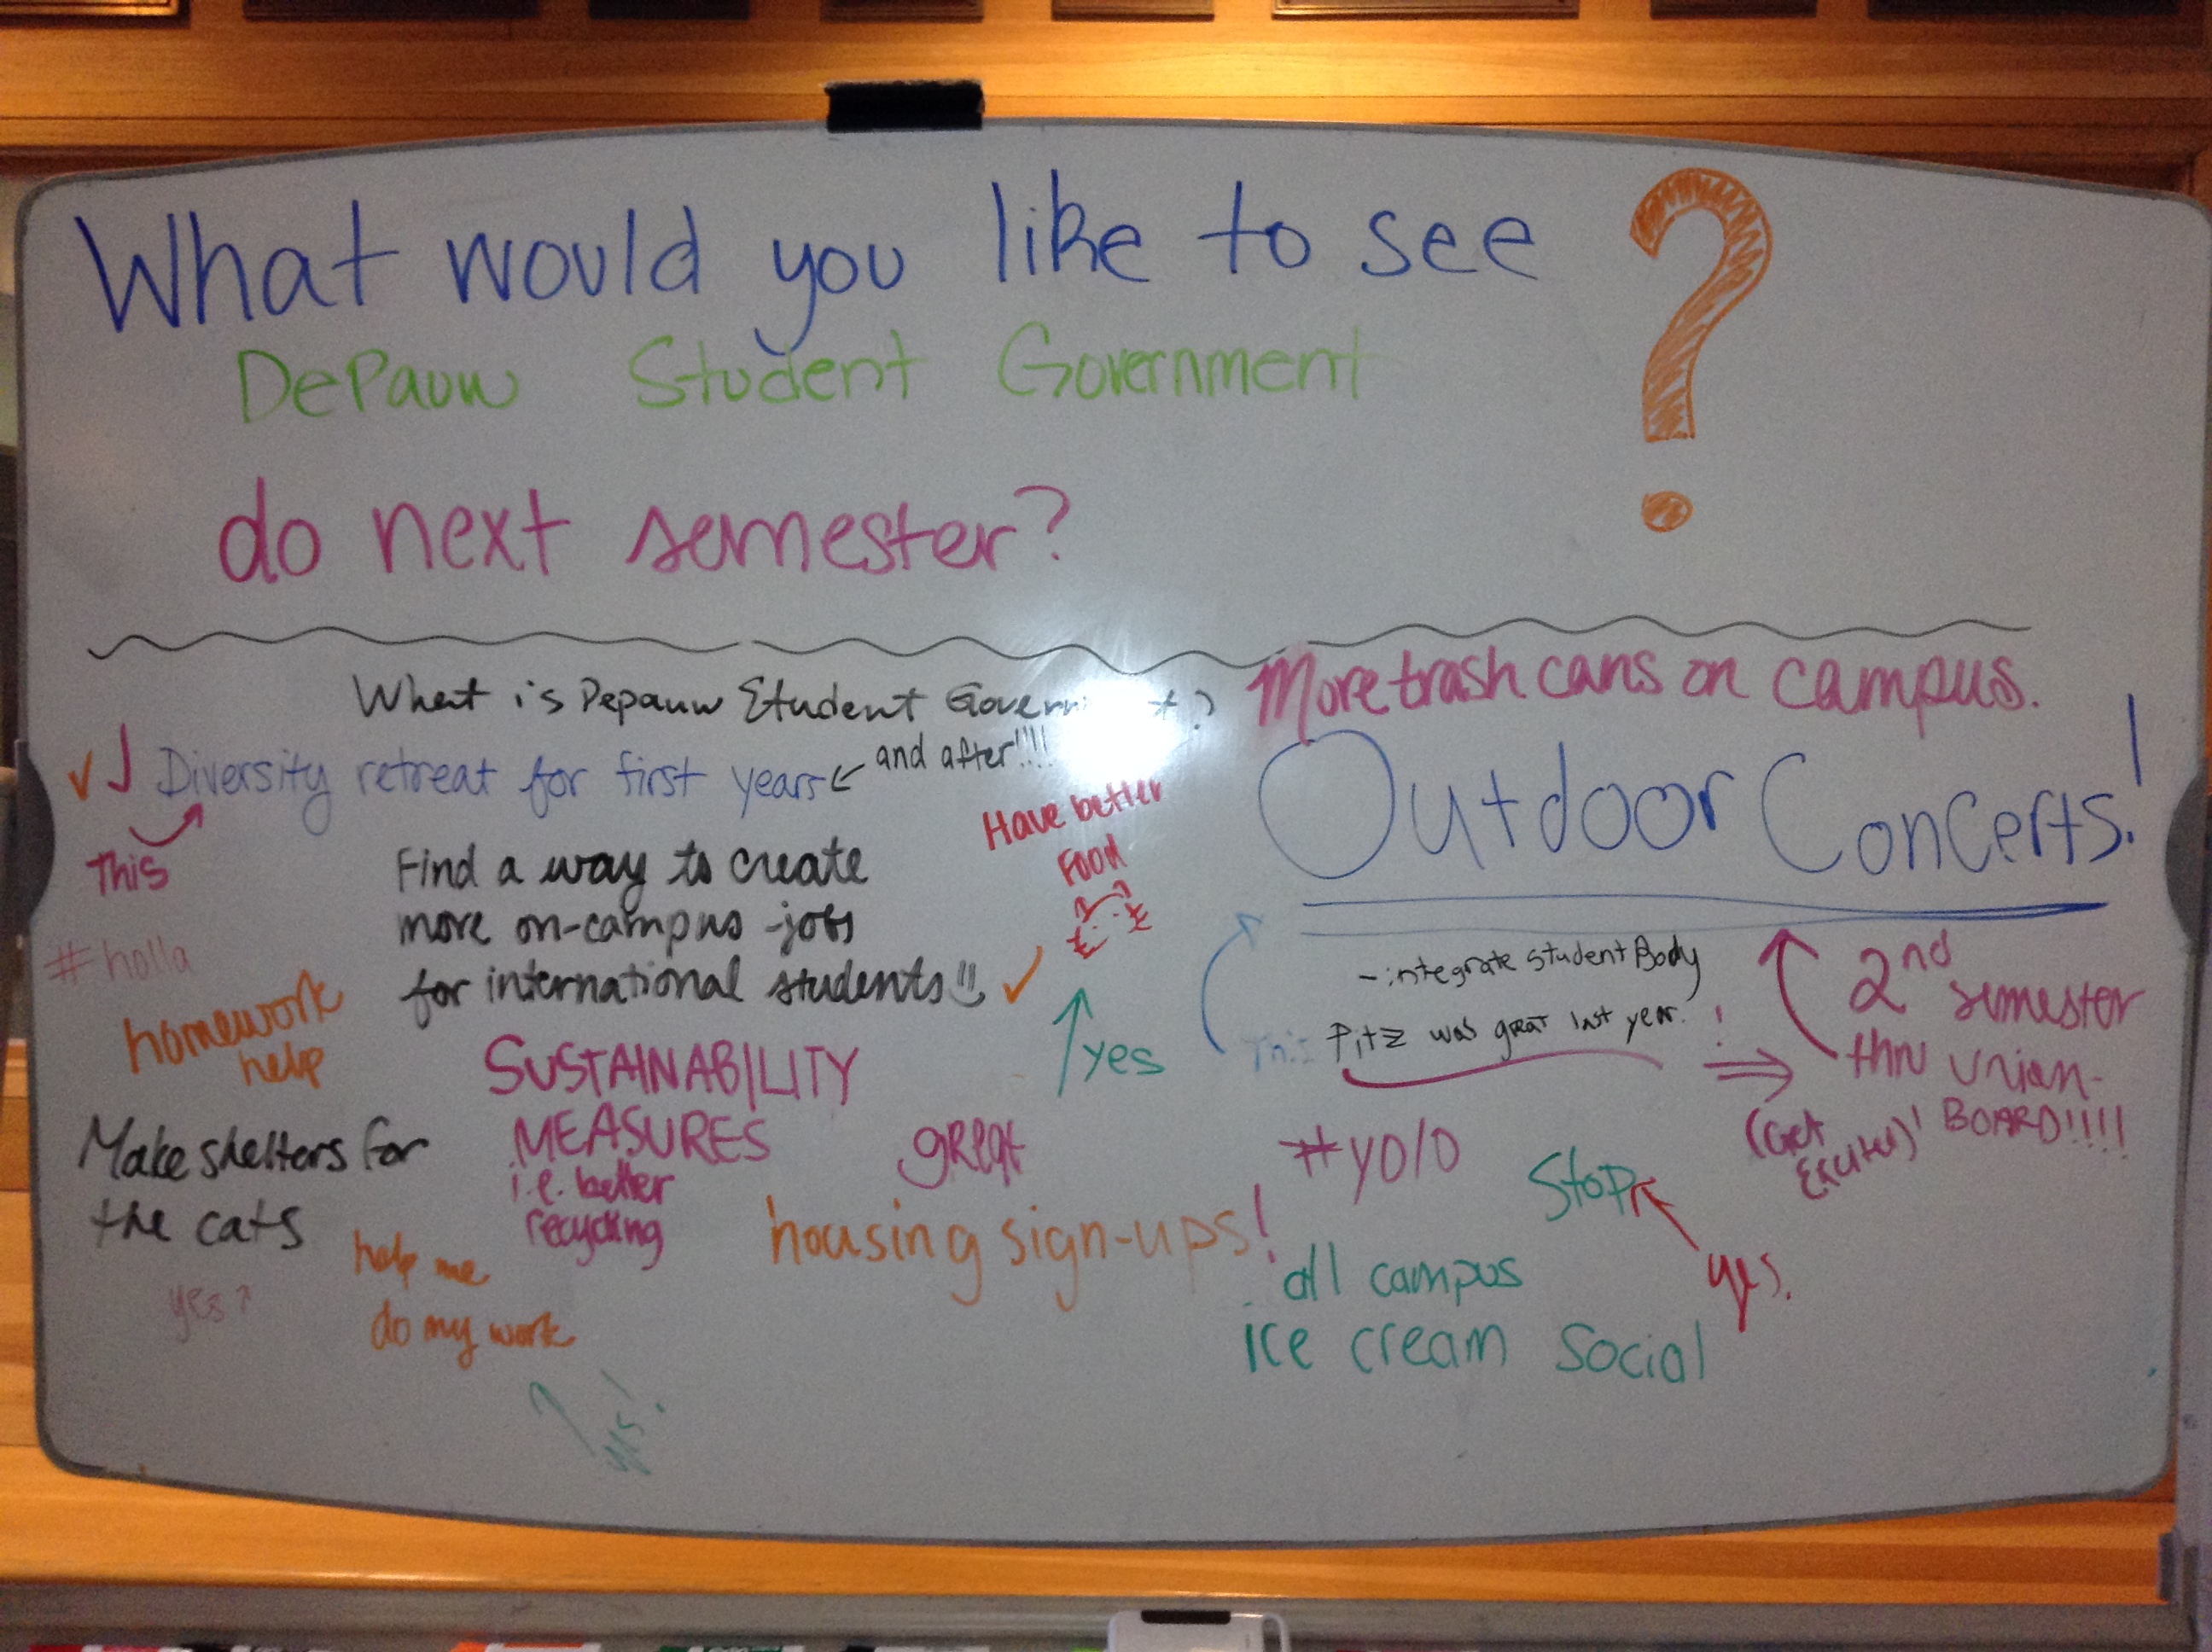 What would you like to see ?
DePauw Student Government
do next semester?
What is Depauw Student Government?
and after!!!!
Diversity retreat for first years
This
#holla
Find a way to create
more on-campus jobs
for international students
Have better
Food
yes
homework
help
SUSTAINABILITY
MEASURES
i.e. better
recycling
Make shelters for
the cats
yes
help me
do my work
yes!
great
housing sign-ups!
More trash cans on campus.
Outdoor Concerts!
This
-integrate student Body
Fitz was great last year. !
2nd
semester
thru union-
BOARD!!!!
(Get
Excited)!
#yolo
Stop
yes.
all campus
ice cream social